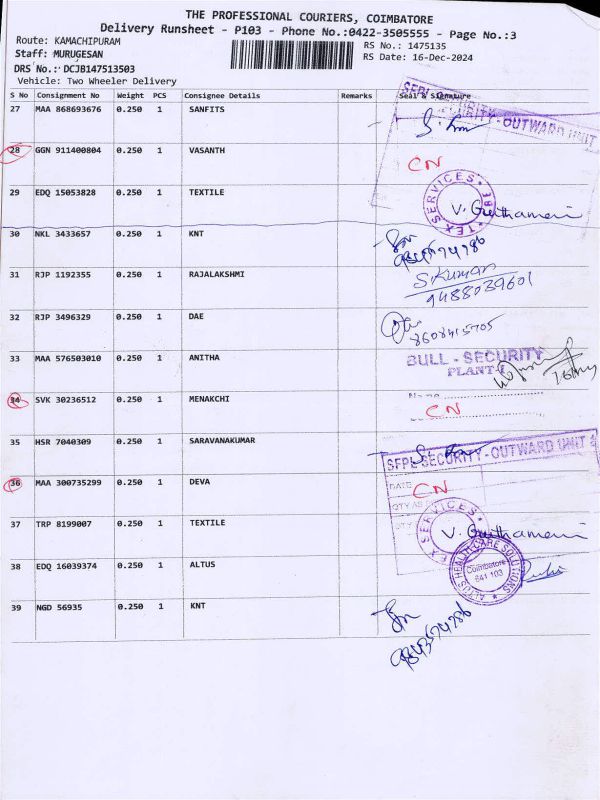 THE PROFESSIONAL COURIERS, COIMBATORE
Delivery Runsheet - P103 - Phone No.:0422-3505555 - Page No.:3
Route: KAMACHIPURAM
RS No.: 1475135
Staff: MURUGESAN
RS Date: 16-Dec-2024
DRS No.: DCJB147513503
Vehicle: Two Wheeler Delivery
S No Consignment No Weight PCS Consignee Details Remarks Seal & Signature
27 MAA 868693676 0.250 1 SANFITS
SECURITY-OUTWARD UNIT
28 GGN 911400804 0.250 1 VASANTH CN
29 EDQ 15053828 0.250 1 TEXTILE
TEX SERVICES
V. Guithameni
30 NKL 3433657 0.250 1 KNT
31 RJP 1192355 0.250 1 RAJALAKSHMI S.Kumar
9488039601
32 RJP 3496329 0.250 1 DAE
8608415705
33 MAA 576503010 0.250 1 ANITHA BULL - SECURITY
PLANT-1
34 SVK 30236512 0.250 1 MENAKCHI CN
35 HSR 7040309 0.250 1 SARAVANAKUMAR
SFPL SECURITY-OUTWARD UNIT
36 MAA 300735299 0.250 1 DEVA DATE CN
QTY AS
37 TRP 8199007 0.250 1 TEXTILE QTY
TEX SERVICES
V. Guithameni
38 EDQ 16039374 0.250 1 ALTUS
ALTUS HEALTH CARE SOLUTIONS
Coimbatore
641 103
39 NGD 56935 0.250 1 KNT